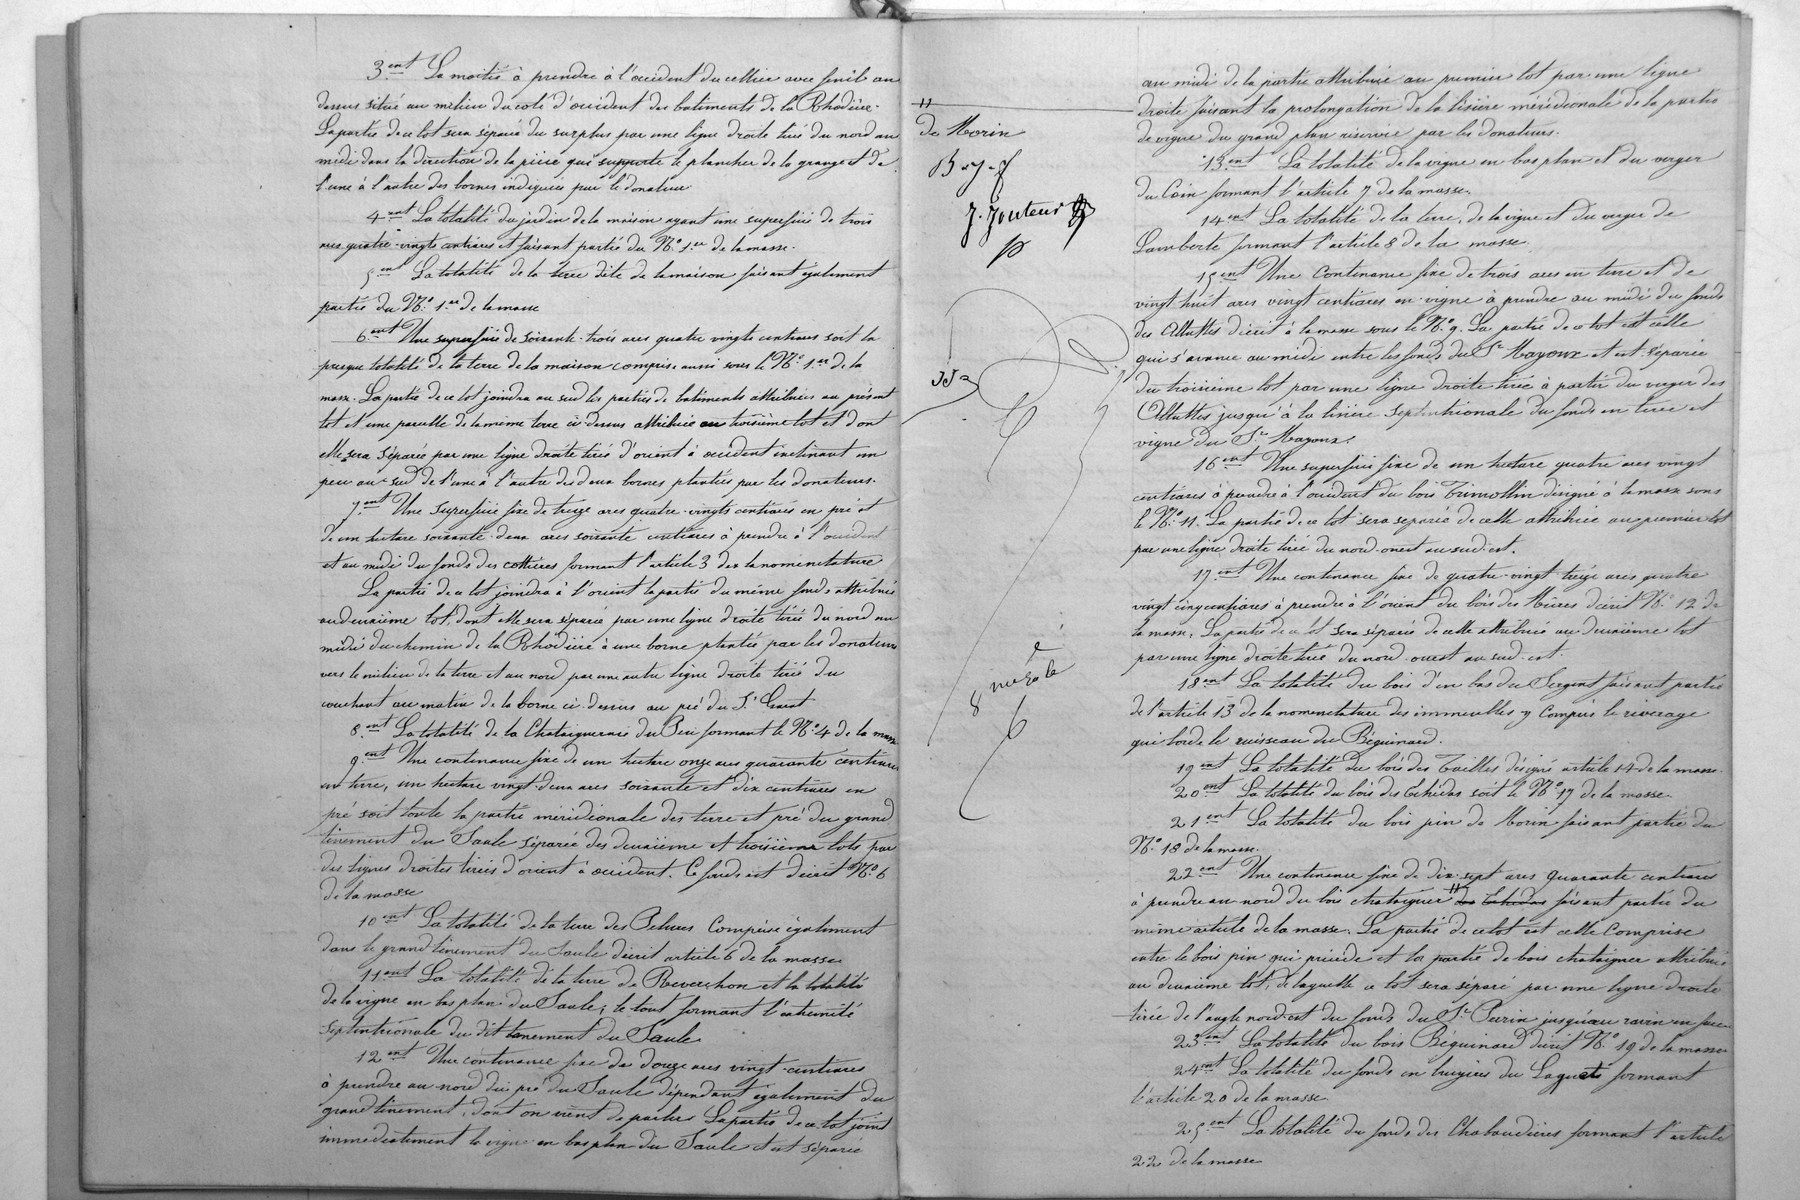 3ent La moitié à prendre à l'occident du cellier avec fenil au
dessus situé au milieu du coté d'occident des batiments de la Rhodière.
La partie de ce lot sera séparée du surplus par une ligne droite tirée du nord au
midi dans la direction de la pièce qui supporte le plancher de la grange et de
l'une à l'autre des bornes indiquées par le donateur
4ent La totalité du jardin de la maison ayant une superficie de trois
ares quatre-vingts centiares et faisant partie du No. 1er de la masse.
5ent La totalité de la terre dite de la maison faisant également
partie du No. 1er de la masse
6ent Une superficie de soixante-trois ares quatre vingts centiares soit la
presque totalité de la terre de la maison comprise aussi sous le No. 1er de la
masse. La partie de ce lot joindra au sud les parties de batiments attribuées au présent
lot et une parcelle de la même terre ci-dessus attribuée au troisième lot et dont
elle sera séparée par une ligne droite tirée d'orient à occident inclinant un
peu au sud de l'une à l'autre des deux bornes plantées par les donateurs.
7ent Une superficie fixe de treize ares quatre-vingts centiares en pré et
de un hectare soixante-deux ares soixante centiares à prendre à l'occident
et au midi du fonds des cottières formant l'article 3 de la nomenclature
La partie de ce lot joindra à l'orient la partie du même fonds attribuée
au deuxième lot, dont elle sera séparée par une ligne droite tirée du nord au
midi du chemin de la Rhodière à une borne plantée par les donateurs
vers le milieu de la terre et au nord par une autre ligne droite tirée du
couchant au matin de la borne ci-dessus au pré du Sr.
8ent La totalité de la Chataigneraie du Beu formant le No. 4 de la masse
9ent Une contenance fixe de un hectare onze ares quarante centiares
en terre, un hectare vingt-deux ares soixante et dix centiares en
pré soit toute la partie méridionale des terre et pré du grand
tènement du Saule séparée des deuxième et troisième lots par
des lignes droites tirées d'orient à occident. Ce fonds est décrit No. 6
de la masse
10ent La totalité de la terre des Pelures Comprise également
dans le grand tènement du Saule décrit article 6 de la masse
11ent La totalité de la terre de Reverchon et la totalité
de la vigne en bas plan du Saule; le tout formant l'extrémité
septentrionale du dit tenement du Saule
12ent Une contenance fixe de douze ares vingt-centiares
à prendre au nord du pré du Saule dépendant également du
grand tènement, dont on vient de parler. La partie de ce lot joint
immédiatement la vigne en bas plan du Saule et est séparée
au midi de la partie attribuée au premier lot par une ligne
droite faisant la prolongation de la lisière méridionale de la partie
de vigne du grand plan réservée par les donateurs.
13ent La totalité de la vigne en bas plan et du verger
du Coin formant l'article 7 de la masse
14ent La totalité de la terre, de la vigne et du verger de
Lamberte formant l'article 8 de la masse.
15ent Une Contenance fixe de trois ares en terre et de
vingt huit ares vingt centiares en vigne à prendre au midi du fonds
des Allattes décrit à la masse sous le No. 9. La partie de ce lot est celle
qui s'avance au midi entre les fonds du Sr. Mayoux et est séparée
du troisième lot par une ligne droite tirée à partir du verger des
Allattes jusqu'à la lisière septentrionale du fonds en terre et
vigne du Sr. Mayoux.
16ent Une superficie fixe de un hectare quatre ares vingt
centiares à prendre à l'occident du bois Trimollin désigné à la masse sous
le No. 11. La partie de ce lot sera séparée de celle attribuée au premier lot
par une ligne droite tirée du nord-ouest au sud-est.
17ent Une contenance fixe de quatre-vingt treize ares quatre
vingt cinq centiares à prendre à l'orient du bois des Mures décrit No. 12 de
la masse. La partie de ce lot sera séparée de celle attribuée au deuxième lot
par une ligne droite tirée du nord-ouest au sud-est.
18ent La totalité du bois d'en bas du Sergent faisant partie
de l'article 13 de la nomenclature des immeubles y Compris le riverage
qui borde le ruisseau du Béguinard.
19ent La totalité du bois des Tailles désigné article 14 de la masse.
20ent La totalité du bois des Echidas soit le No. 17 de la masse.
21ent La totalité du bois pin de Morin faisant partie du
No. 18 de la masse.
22ent Une contenance fixe de dix-sept ares quarante centiares
à prendre au nord du bois chataignier des Echidas faisant partie du
même article de la masse. La partie de ce lot est celle Comprise
entre le bois pin qui précède et la partie de bois chataignier attribuée
au deuxième lot, de laquelle ce lot sera séparé par une ligne droite
tirée de l'angle nord-est du fonds du Sr. Perrin jusqu'au ravin en face
23ent La totalité du bois Béguinard décrit No. 19 de la masse
24ent La totalité du fonds en bruyères du Laquets formant
l'article 20 de la masse.
25ent La totalité du fonds des Chabaudières formant l'article
22 de la masse
de Morin
J. Jouteur